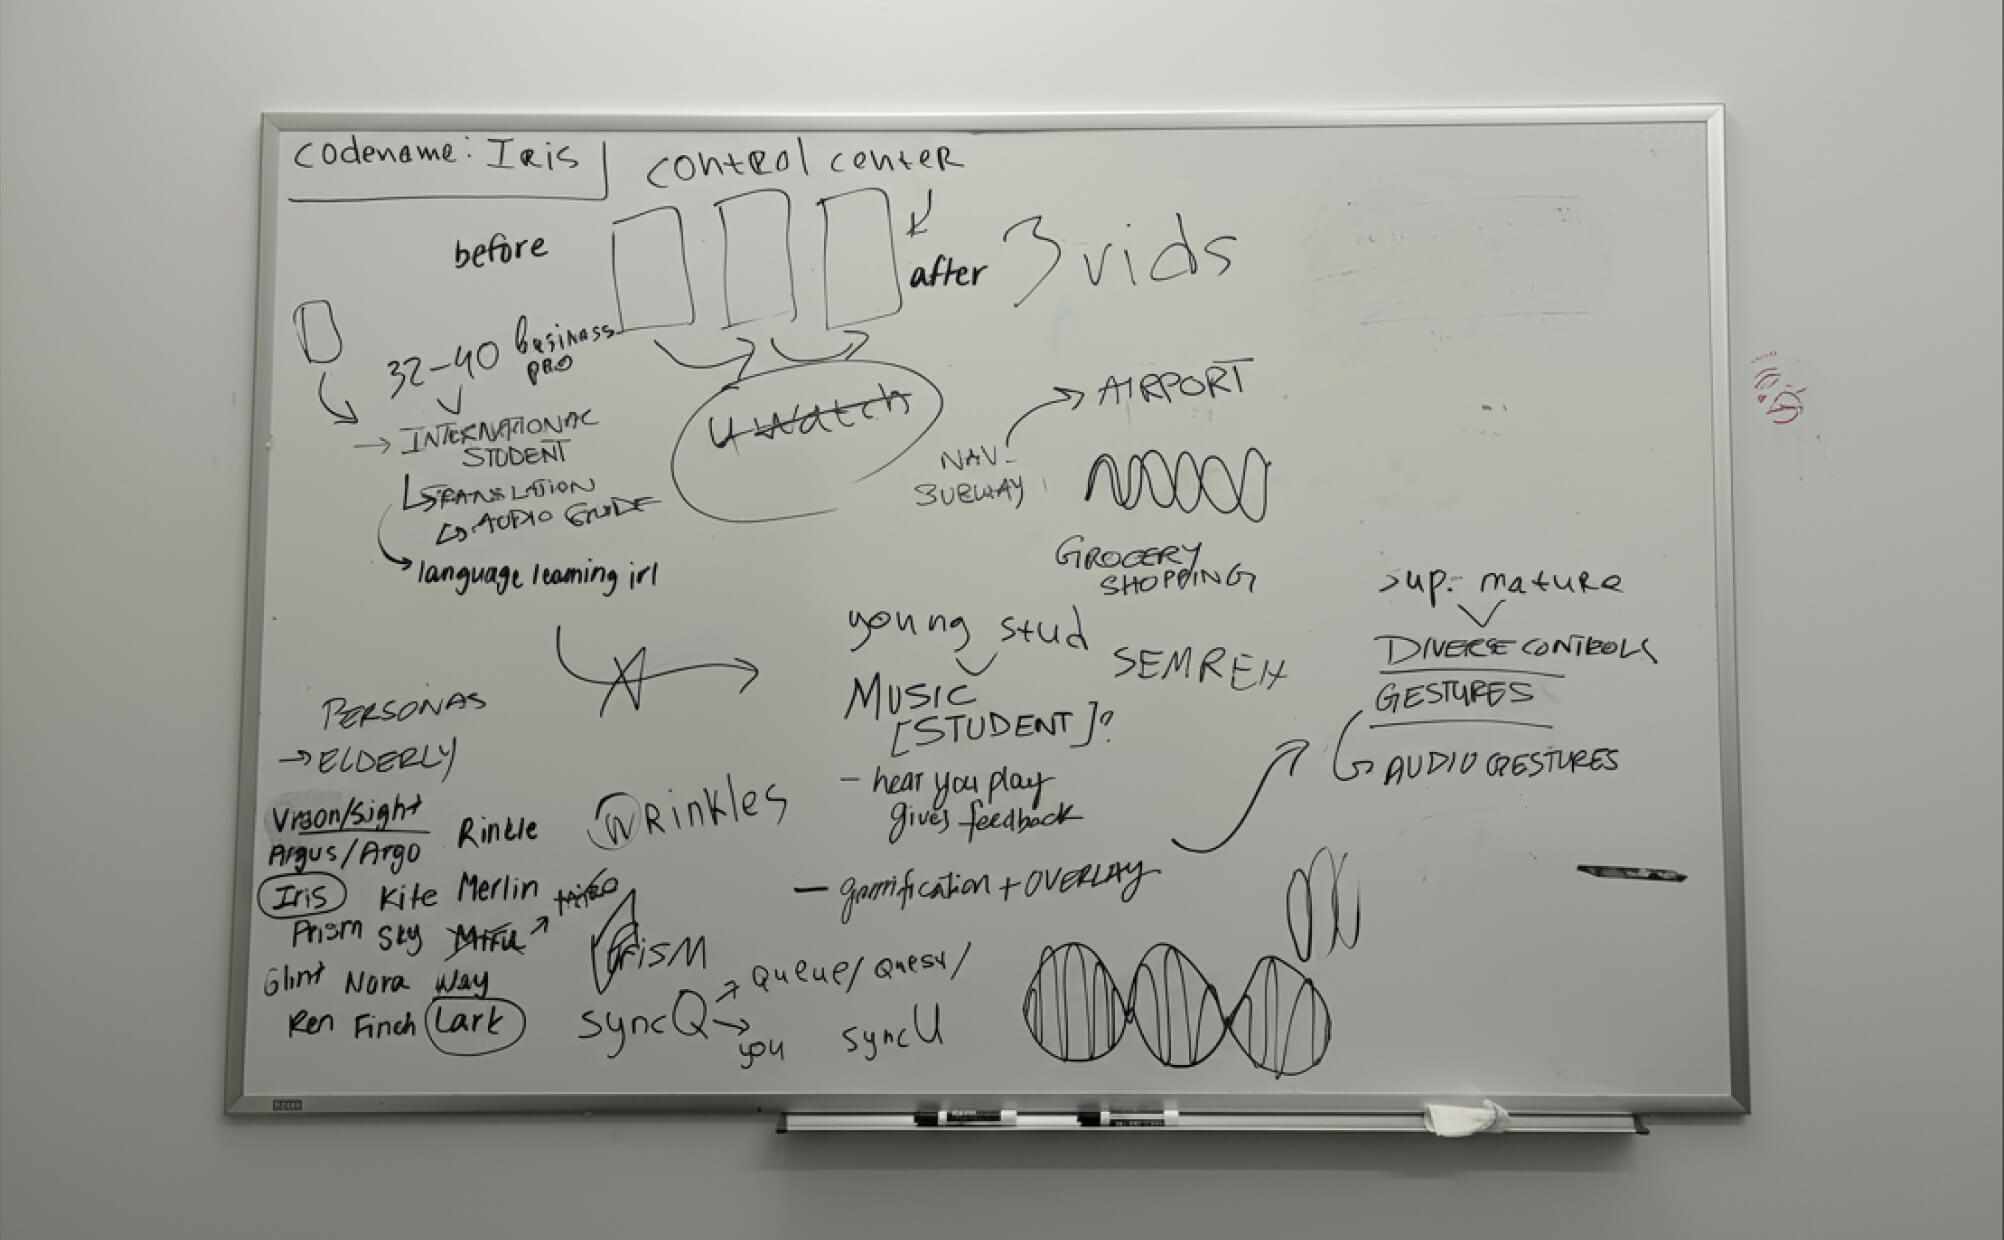 codename: Iris
control center
before
after
3 vids
32-40 business
pro
INTERNATIONAL
STUDENT
TRANSLATION
AUDIO GUIDE
language learning irl
u watch
AIRPORT
NAV-
SUBWAY
GROCERY
SHOPPING
>up. mature
DIVERSE CONTROLS
GESTURES
AUDIO GESTURES
young stud
SEMREH
MUSIC
[STUDENT]?
- hear you play
gives feedback
- gamification + OVERLAY
PERSONAS
→ ELDERLY
Vision/Sight
Argus/Argo
Rinkle
WRinkles
Iris Kite Merlin
Prism Sky
PrisM
Glint Nora Way
Ren Finch Lark
syncQ → queue/
→ you
syncU